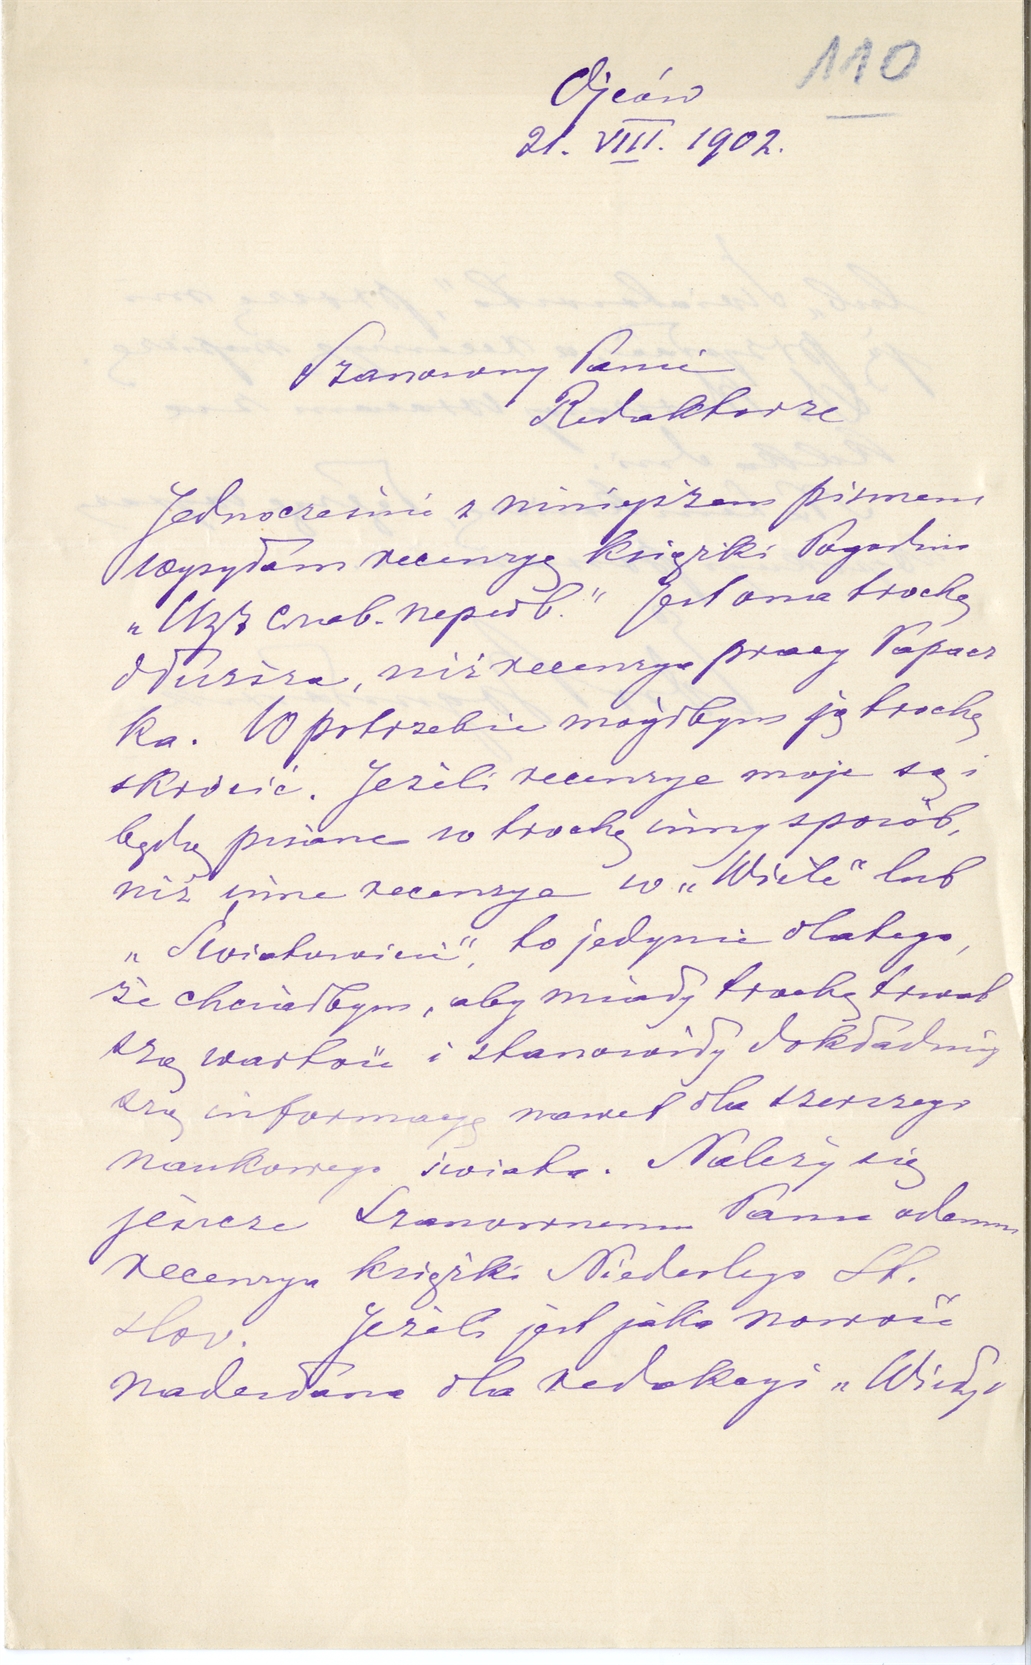 110
Ojców
21. VIII. 1902.
Szanowny Panie
Redaktorze
Jednocześnie z niniejszem pismem
wysyłam recenzyę książki Pogodina
„Изъ слав. передв.“ Jest ona trochę
dłuższa, niż recenzya pracy Papacz
ka. W potrzebie mógłbym ją trochę
skrócić. Jeżeli recenzye moje są i
będą pisane w trochę inny sposób,
niż inne recenzye w „Wiśle“ lub
„Światowicie“, to jedynie dlatego,
że chciałbym, aby miały trochę trwal
szą wartość i stanowiły dokładniej
szą informacyę nawet dla szerszego
naukowego świata. Należy się
jeszcze Szanownemu Panu odemnie
recenzya książki Niederlego St.
slov. Jeżeli jest jaka nowość
nadesłana dla redakcyi „Wisły“